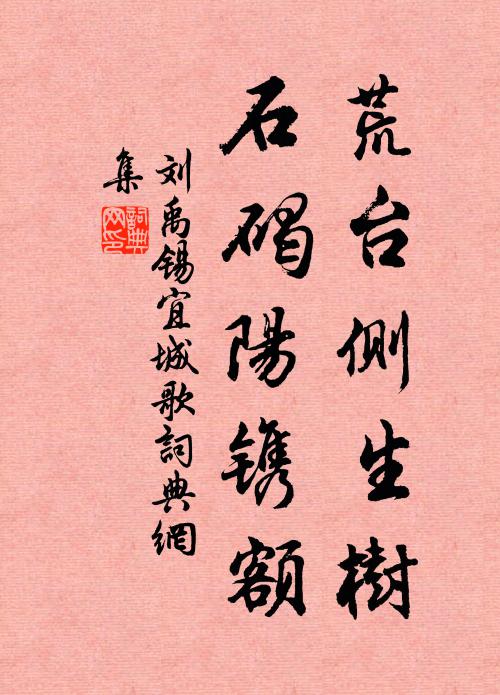 荒台側生樹
石碣陽镌額
刘禹锡宜城歌詞典網
集
詞典
网印